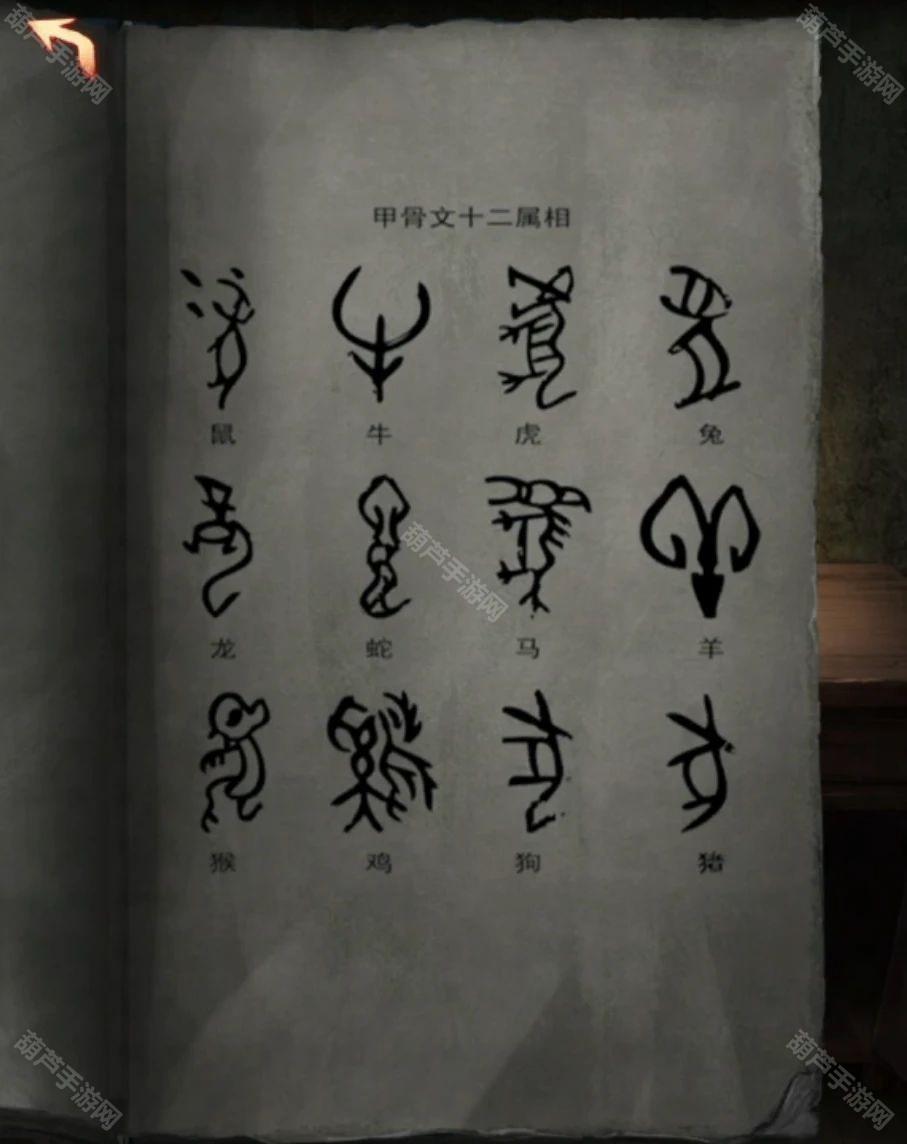 葫芦手游网
葫芦手游网
甲骨文十二属相
鼠 牛 虎 兔
葫芦手游网
龙 蛇 马 羊
猴 鸡 狗 猪
葫芦手游网
葫芦手游网